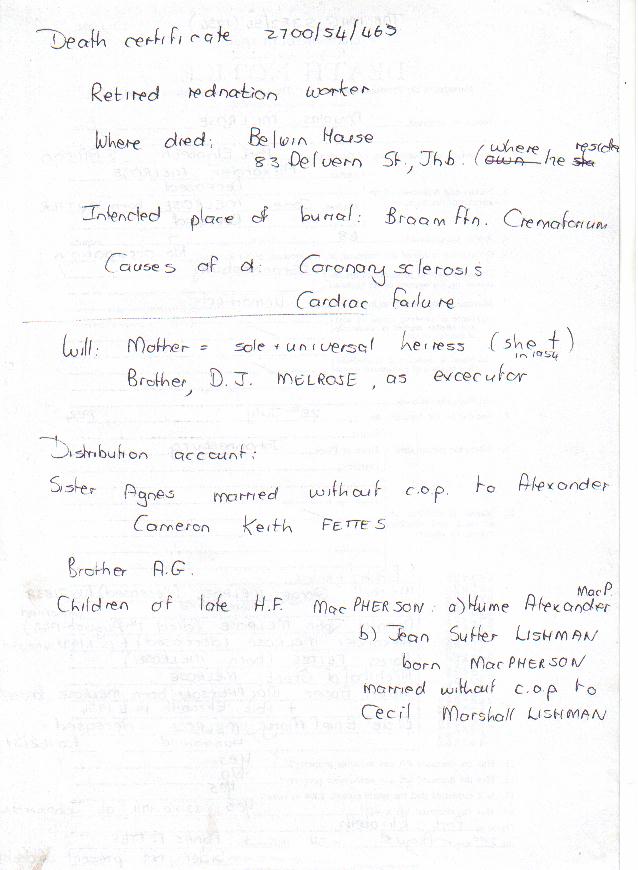 Death certificate 2700/54/463
Retired rednation worker
Where died: Belwin House
83 Delvern St., Jhb. (where he
Intended place of burial: Braam ftn. Crematorium
Causes of d: Coronary sclerosis
Cardiac failure
Will: Mother = sole + universal heiress (she † in 1954)
Brother, D.J. MELROSE, as excecutor
Distribution account:
Sister Agnes married without c.o.p. to Alexander
Cameron Keith FETTES
Brother A.G.
Children of late H.F. MacPHERSON: a) Hume Alexander MacP.
b) Jean Sutter LISHMAN
born MacPHERSON
married without c.o.p to
Cecil Marshall LISHMAN